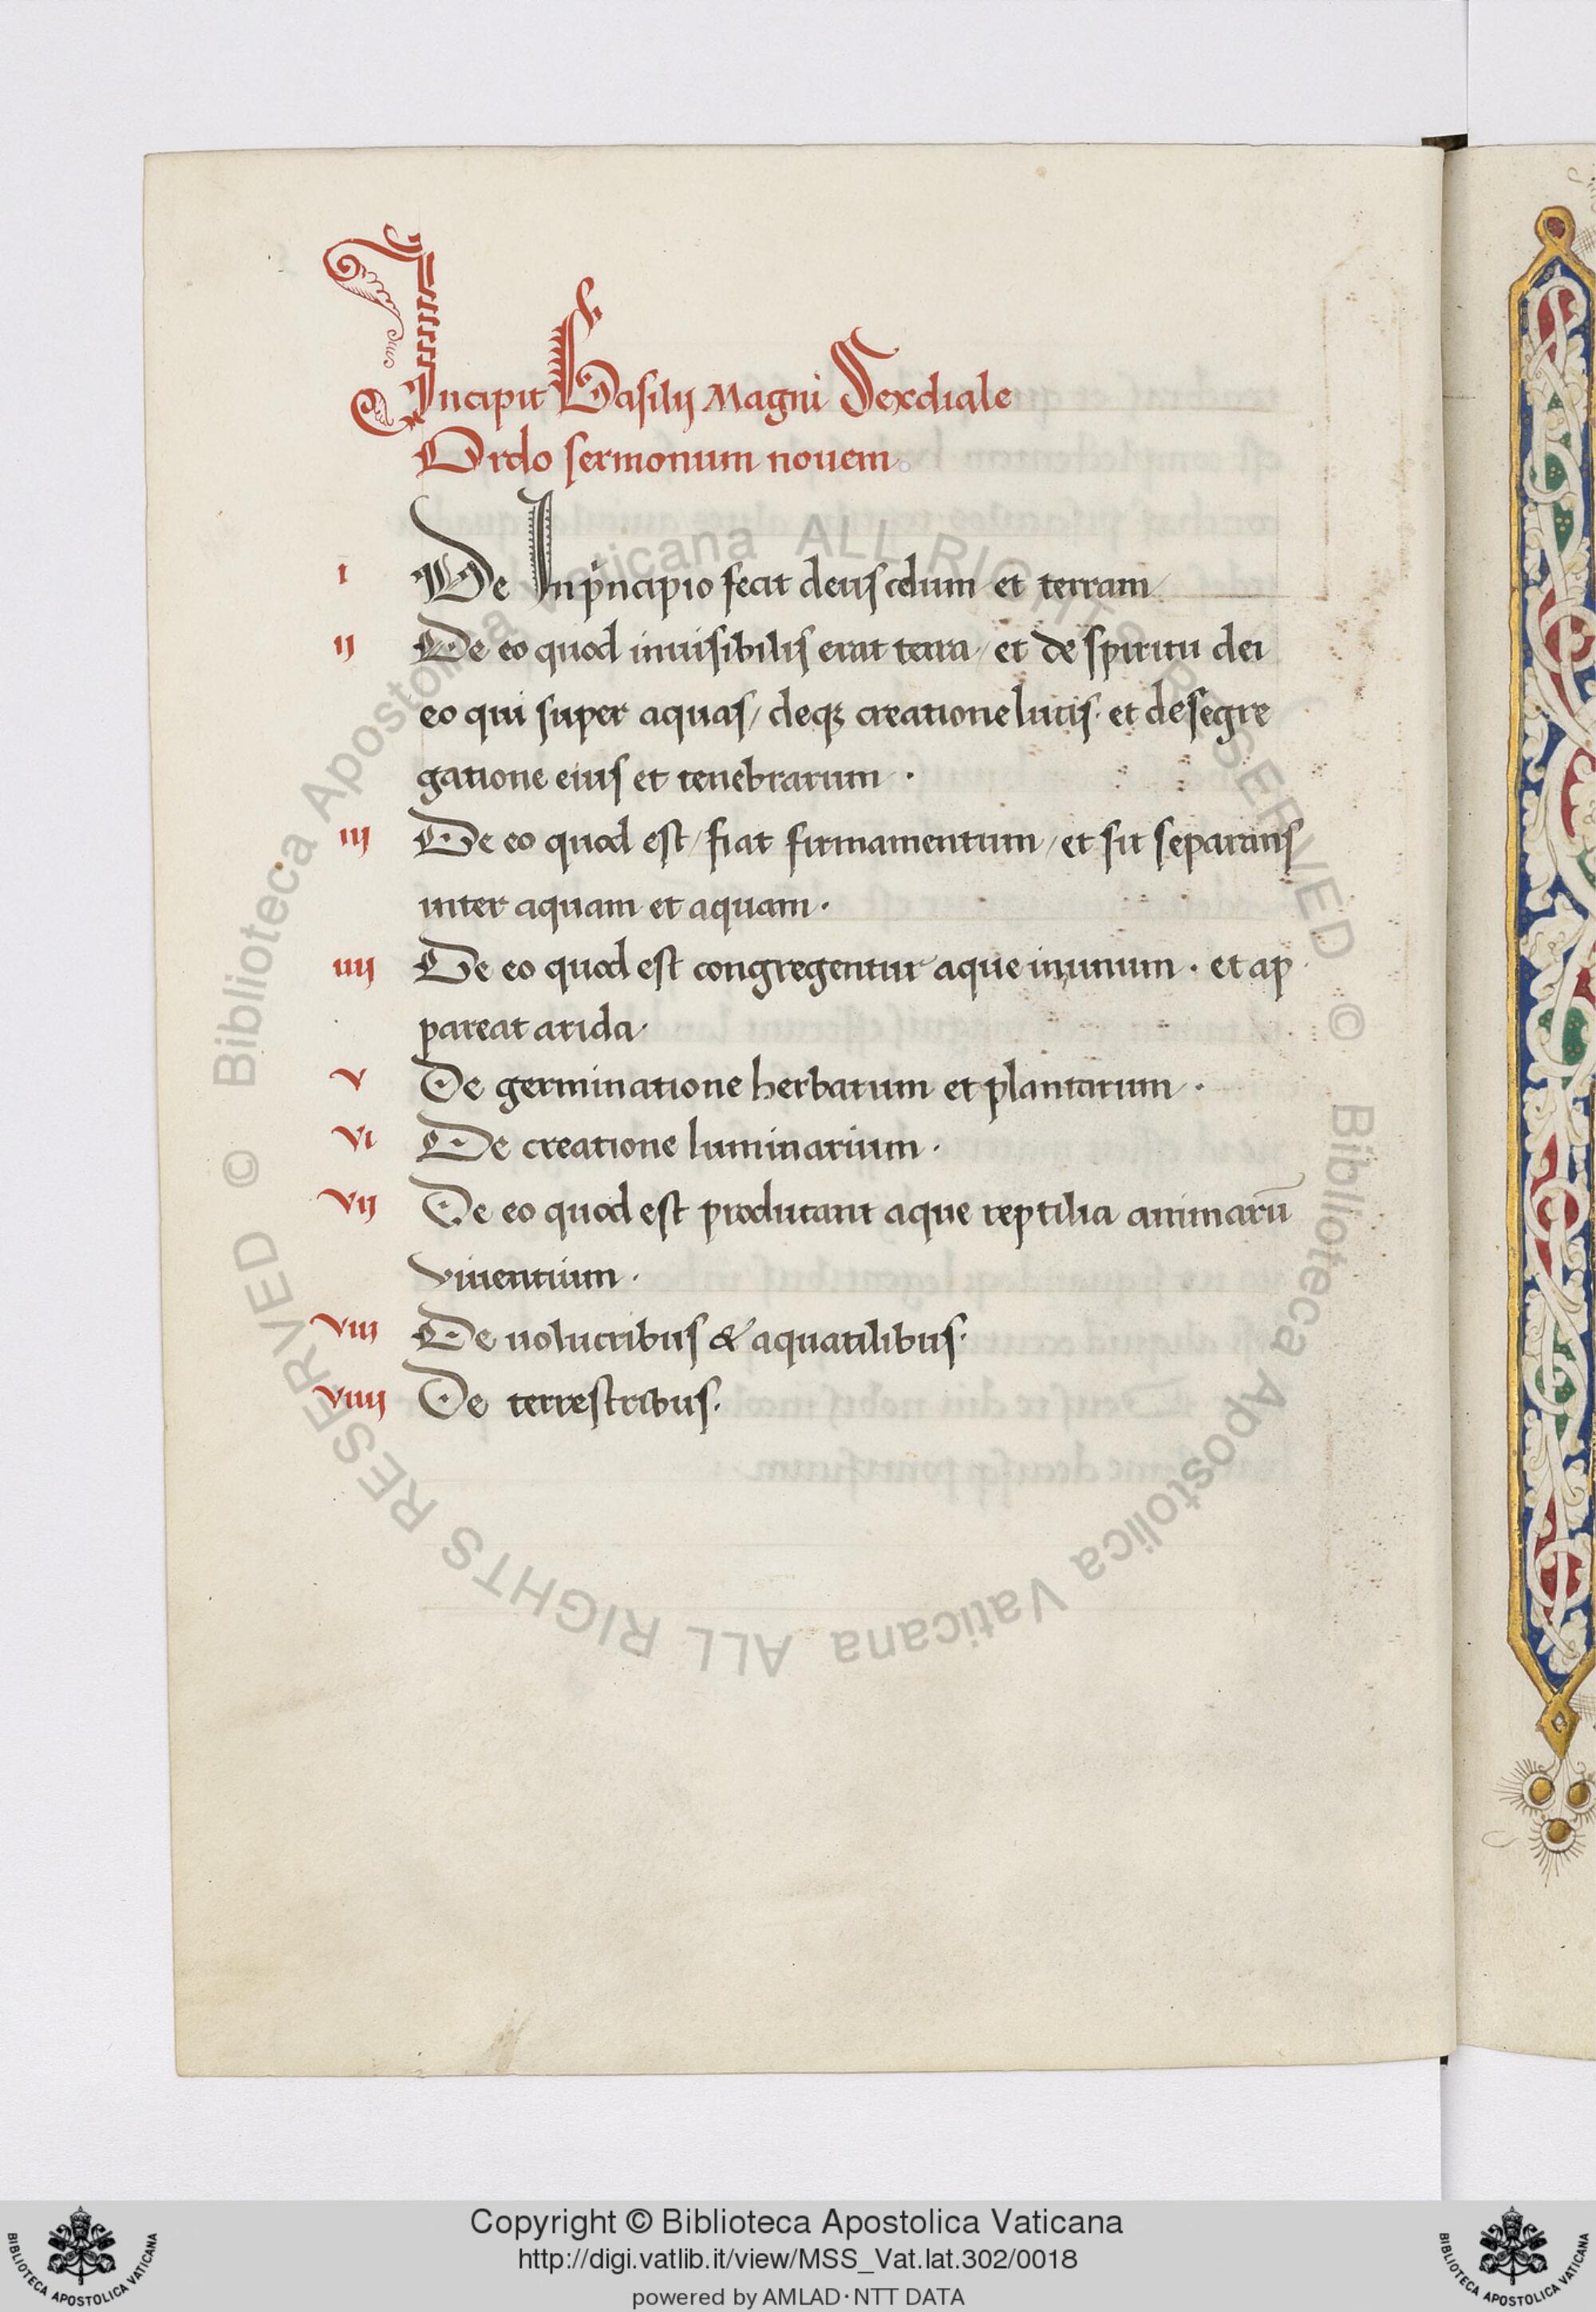 Incipit Basilij Magni Sexdiale
Ordo sermonum nouem
i De In pͥncipio fecit deus celum et terram
ij De eo quod inuisibilis erat terra / et de spiritu dei
eo qui super aquas / deqꝫ creatione lucis · et de segre
gatione eius et tenebrarum ·
iij De eo quod est / fiat firmamentum / et sit separans
inter aquam et aquam ·
iiij De eo quod est congregentur aque in unum · et ap
pareat arida ·
v De germinatione herbarum et plantarum ·
vi De creatione luminarium ·
vij De eo quod est producant aque reptilia animarū
viuentium ·
viij De uolucribus & aquatilibus ·
viiij De terrestribus ·
© Biblioteca Apostolica Vaticana ALL RIGHTS RESERVED
© Biblioteca Apostolica Vaticana ALL RIGHTS RESERVED
Copyright © Biblioteca Apostolica Vaticana
http://digi.vatlib.it/view/MSS_Vat.lat.302/0018
powered by AMLAD·NTT DATA
BIBLIOTECA APOSTOLICA VATICANA
BIBLIOTECA APOSTOLICA VATICANA